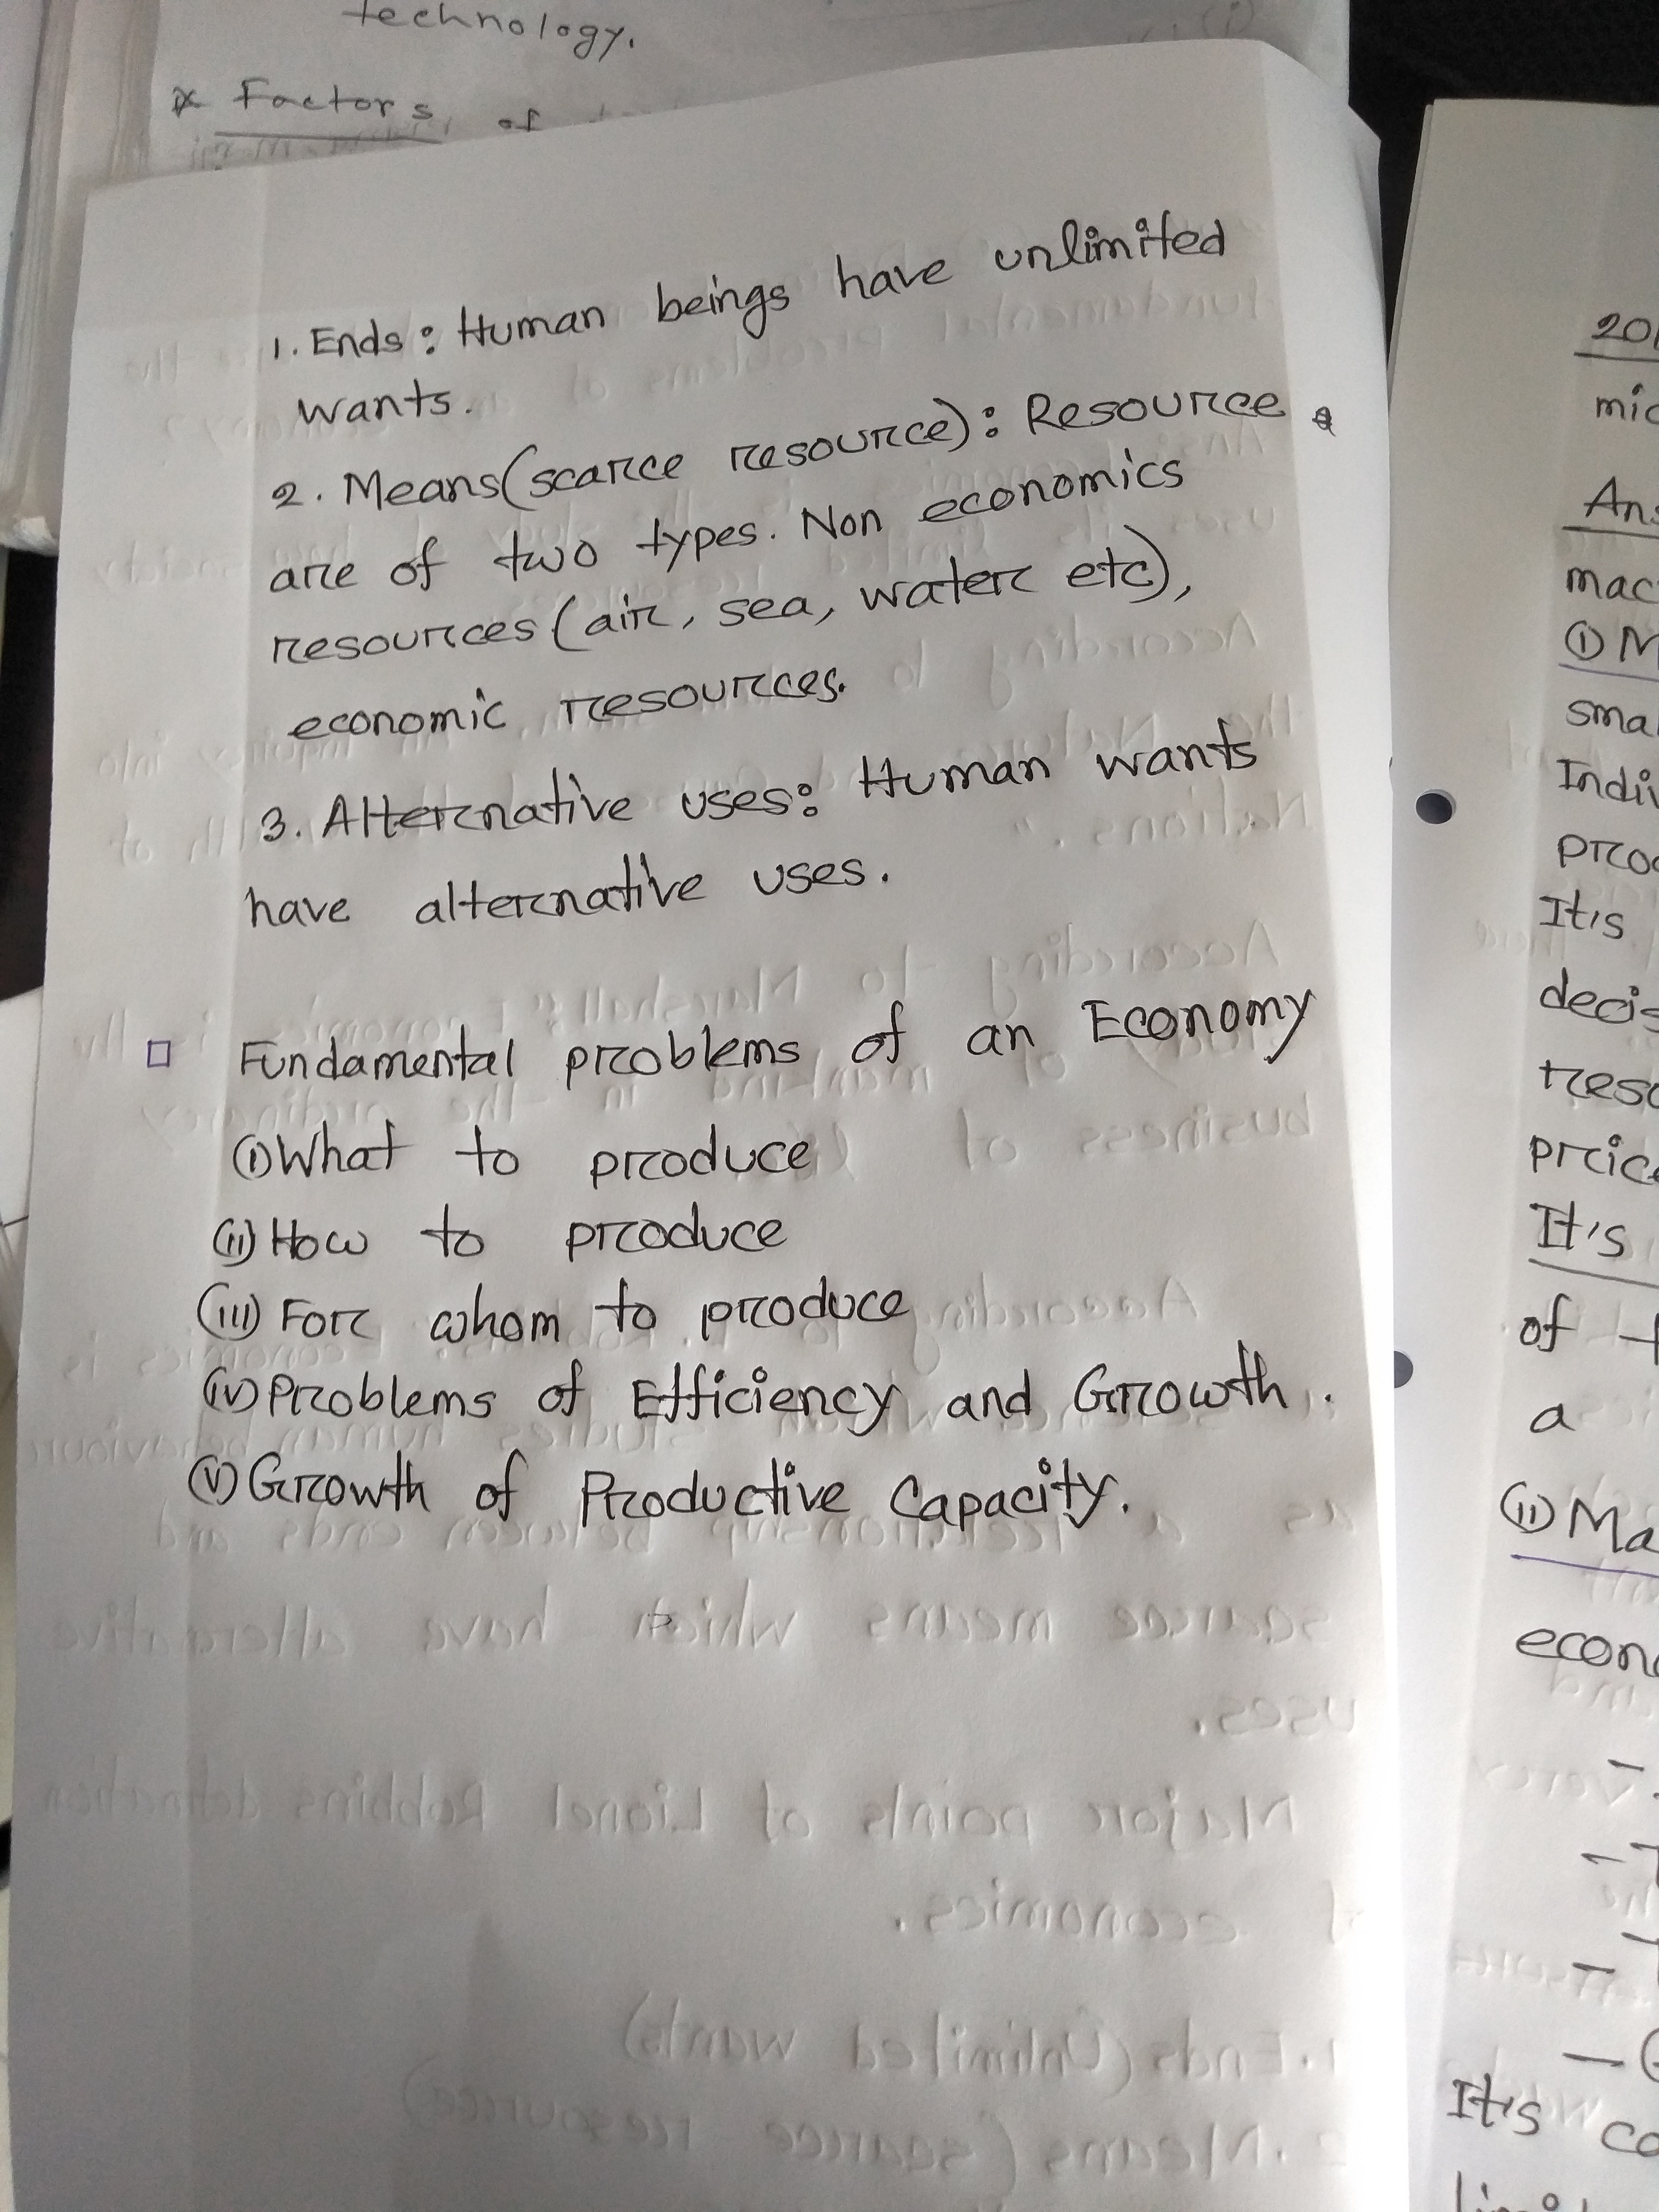 technology.
* Factors of
1. Ends: Human beings have unlimited
wants.
2. Means(scarce resource): Resource
are of two types. Non economics
resources (air, sea, water etc),
economic resources.
3. Alternative uses: Human wants
have alternative uses.
□ Fundamental problems of an Economy
(i) What to produce
(ii) How to produce
(iii) For whom to produce
(iv) Problems of Efficiency and Growth.
(v) Growth of Productive Capacity.
It's
(i)
It's
of
a
(ii)
It's